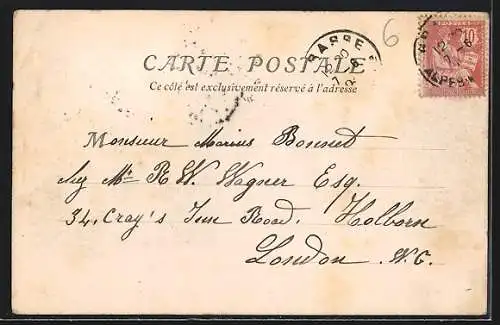 6
CARTE POSTALE
Ce côté est exclusivement réservé à l'adresse
10
Monsieur Marius Bonnet
chez Mr R. W. Wagner Esq.
34, Cray's Inn Road. Holborn
London. W.C.